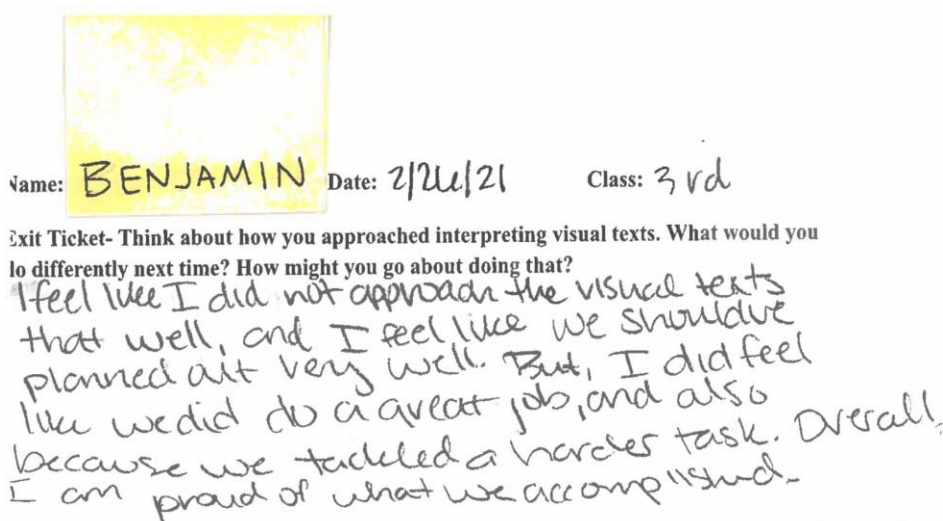 Name: BENJAMIN Date: 2/24/21 Class: 3rd
Exit Ticket- Think about how you approached interpreting visual texts. What would you
do differently next time? How might you go about doing that?
I feel like I did not approach the visual texts
that well, and I feel like we shouldve
planned out very well. But, I did feel
like we did do a great job, and also
because we tackled a harder task. Overall,
I am proud of what we accomplished.